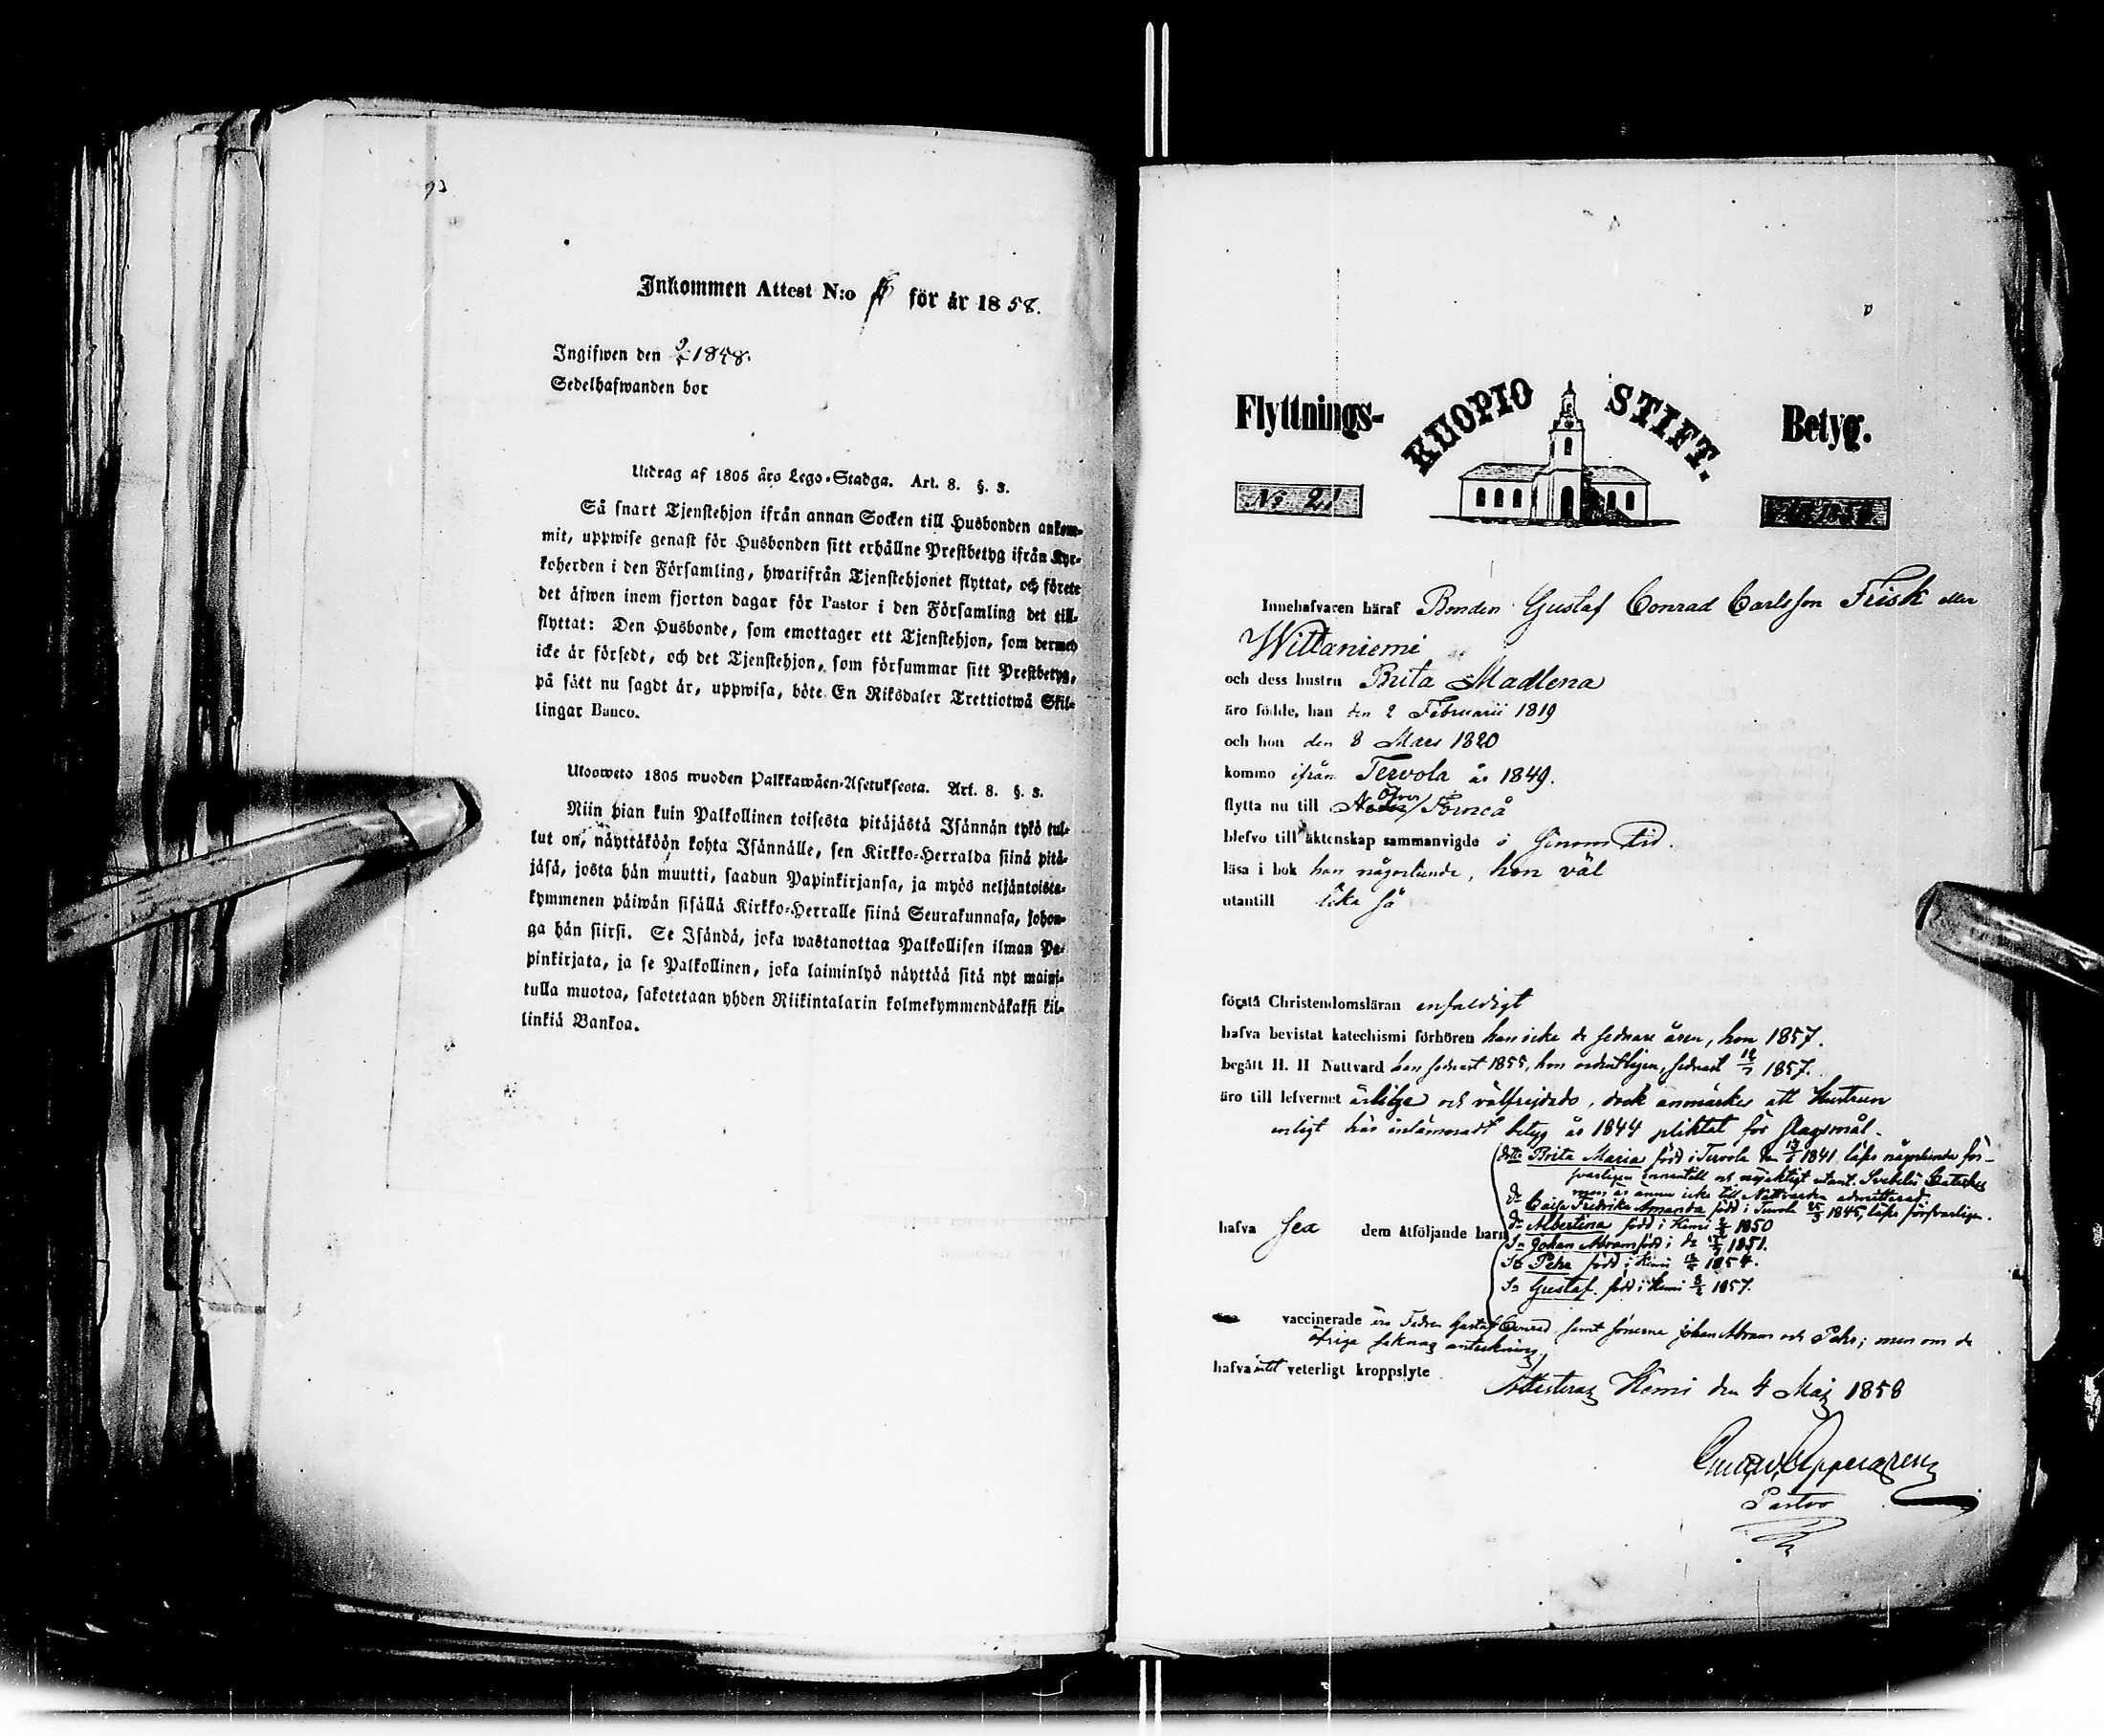 Inkommen Attest N:o för år 1858.
Ingifwen den 9/5 1858.
Sedelhafwanden bor
Utdrag af 1805 års Lego-Stadga. Art. 8. §. 3.
Så snart Tjenstehjon ifrån annan Socken till Husbonden ankom-
mit, uppwise genast för Husbonden sitt erhållne Prestbetyg ifrån Kyr-
koherden i den Församling, hwarifrån Tjenstehjonet flyttat, och förete
det äfwen inom fjorton dagar för Pastor i den Församling det till-
flyttat: Den Husbonde, som emottager ett Tjenstehjon, som dermed
icke är försedt, och det Tjenstehjon, som försummar sitt Prestbetyg,
på sätt nu sagdt är, uppwisa, böte En Riksdaler Trettiotwå Skil-
lingar Banco.
Ulosweto 1805 wuoden Palkkawäen-Asetuksesta. Art. 8. §. 3.
Niin pian kuin Palkollinen toisesta pitäjästä Isännän tykö tul-
lut on, näyttäköön kohta Isännälle, sen Kirkko-Herralda siinä pitä-
jäsä, josta hän muutti, saadun Papinkirjansa, ja myös neljäntoista-
kymmenen päiwän sisällä Kirkko-Herralle siinä Seurakunnasa, johon-
ga hän siirsi. Se Isändä, joka wastanottaa Palkollisen ilman Pa-
pinkirjata, ja se Palkollinen, joka laiminlyö näyttää sitä nyt maini-
tulla muotoa, sakotetaan yhden Riikintalarin kolmekymmendäkaksi kil-
linkiä Bankoa.
Flyttnings- KUOPIO STIFT. Betyg.
No 21
Innehafvaren häraf Bonden Gustaf Conrad Carlsson Frisk eller
Wittaniemi
och dess hustru Brita Madlena
äro födde, han den 2 Februarii 1819
och hon den 8 Mars 1820
kommo ifrån Tervola år 1849.
flytta nu till Öfver/Torneå
blefvo till äktenskap sammanvigde i sinom tid.
läsa i bok han någorlunda, hon väl
utantill lika så
förstå Christendomsläran enfaldigt
hafva bevistat katechismi förhören han icke de sednare åren, hon 1857.
begått H. H Nattvard han sednast 1855, hon ordentligen, sednast 12/7 1857.
äro till lefvernet ärlige och välfrejdade, dock anmärkes att Hustrun
enligt här inlämnadt betyg år 1844 pliktat för slagsmål.
dottr Brita Maria född i Tervola den 1841, läser någorlunda för-
svarligen innantill och utant. Svebelii Cateches
men är ännu icke till Nattvarden admitterad.
dr Caisa Fredrika Amanda född i Tervola 25/3 1845, läser försvarligen.
hafva sex dem åtföljande barn
dr Albertina född i Kemi 1850
Sn Johan Abram född i do 1851.
Sn Pehr född i Kemi 1854.
Sn Gustaf född i Kemi 1857.
vaccinerade äro Fadren Gustaf Conrad samt sönerne Johan Abram och Pehr; men om de
öfriga saknas anteckning.
hafva intet veterligt kroppslyte
Attesteras Kemi den 4 Maj 1858
Pastor